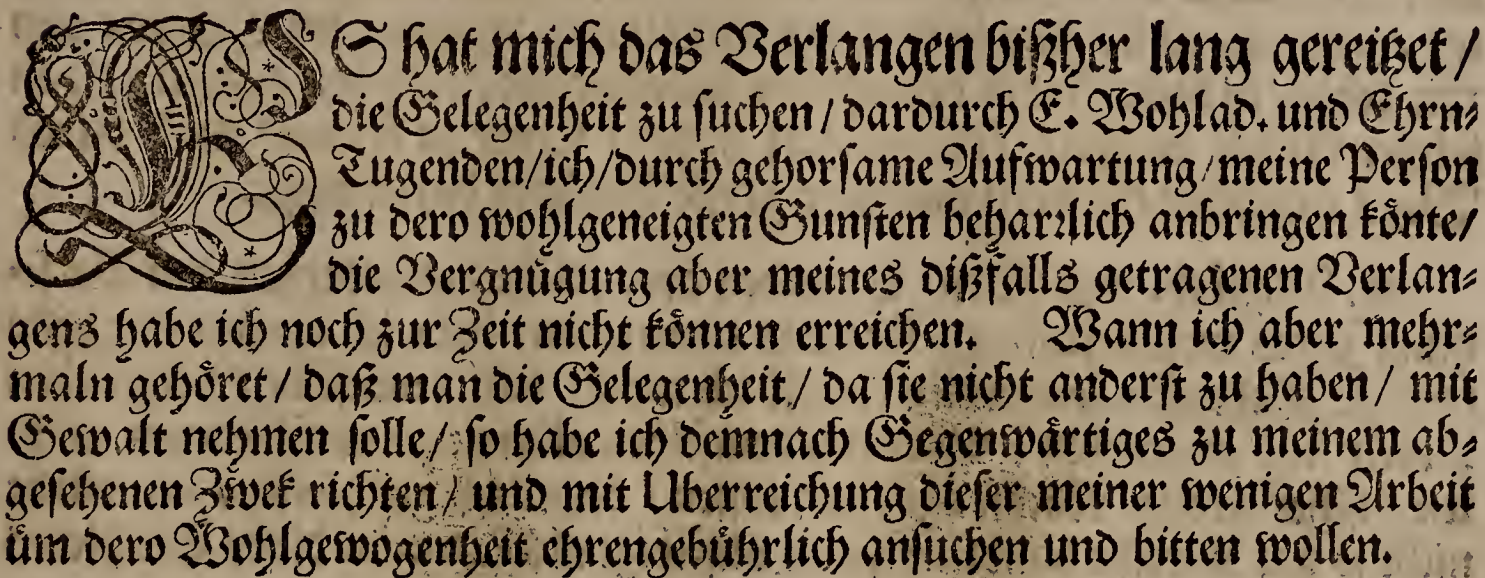 ES hat mich das Verlangen bißher lang gereitzet /
die Gelegenheit zu suchen / dardurch E. Wohlad. und Ehrn⸗
Tugenden/ich/durch gehorsame Aufwartung/meine Person
zu dero wohlgeneigten Gunsten beharꝛlich anbringen koͤnte/
die Vergnuͤgung aber meines dißfalls getragenen Verlan⸗
gens habe ich noch zur Zeit nicht koͤnnen erreichen. Wann ich aber mehr⸗
maln gehoͤret / daß man die Gelegenheit / da sie nicht anderst zu haben / mit
Gewalt nehmen solle / so habe ich demnach Gegenwaͤrtiges zu meinem ab⸗
gesehenen Zwek richten / und mit Uberreichung dieser meiner wenigen Arbeit
uͤm dero Wohlgewogenheit ehrengebuͤhrlich ansuchen und bitten wollen.